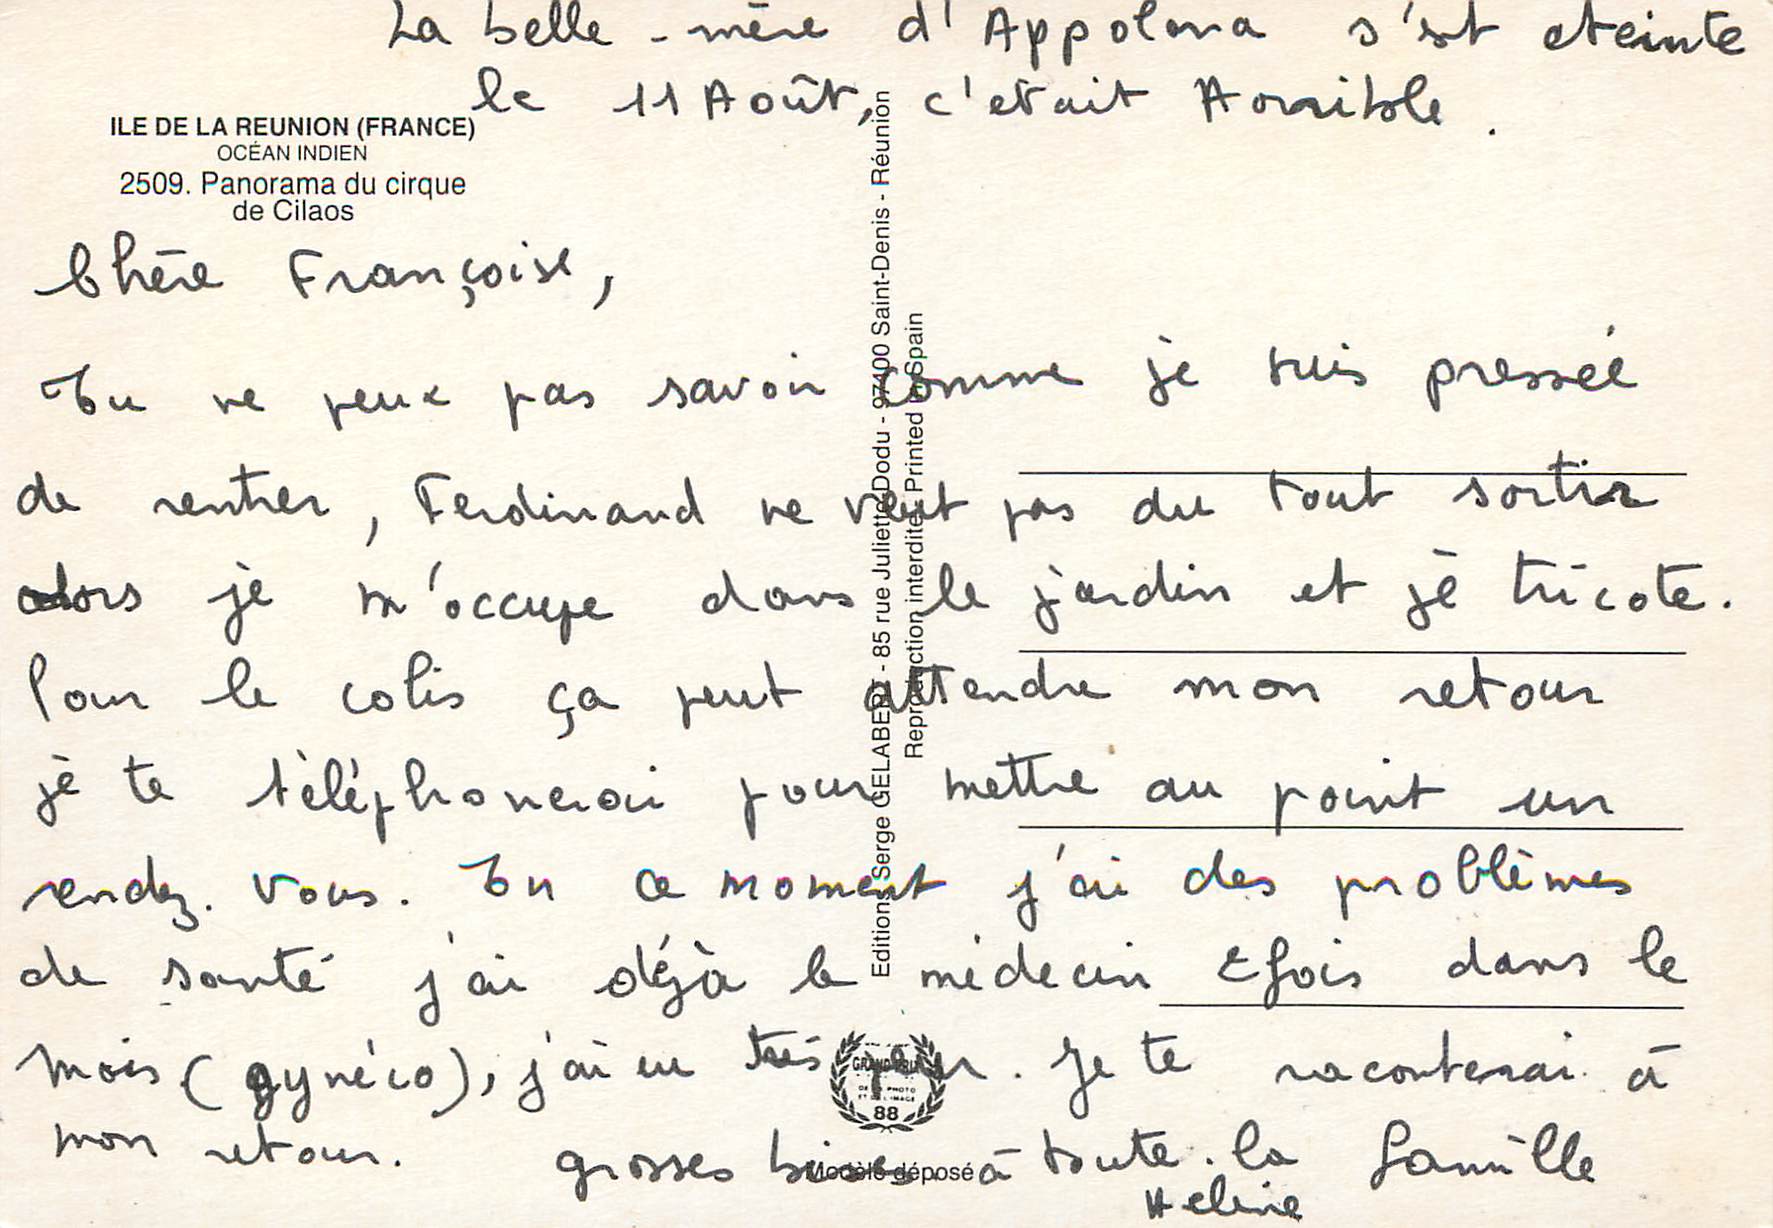 La belle-mère d'Appolona s'st eteinte
le 11 Août, c'etait Horrible.
ILE DE LA REUNION (FRANCE)
OCÉAN INDIEN
2509. Panorama du cirque
de Cilaos
Chère Françoise,
Tu ne peux pas savoir comme je suis pressée
de rentrer, Ferdinand ne veut pas du tout sortir
alors je m'occupe dans le jardin et je tricote.
Pour le colis ça peut attendre mon retour
je te téléphonerai pour mettre au point un
rendez-vous. En ce moment j'ai des problèmes
de santé j'ai déjà le médecin 2 fois dans le
mois (gynéco), j'ai eu très peur. Je te raconterai à
mon retour. grosses bises à toute la famille
Helene
Editions Serge GELABERT - 85 rue Juliette Dodu - 97400 Saint-Denis - Réunion
Reproduction interdite Printed in Spain
GRAND PRIX
DE LA PHOTO
ET DE L'IMAGE
88
Modèle déposé